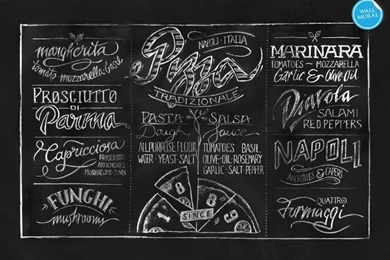 margherita
tomato, mozzarella, basil
PROSCIUTTO
DI
Parma
Capricciosa
PROSCIUTTO
ARTICHOKES
MUSHROOMS - OLIVES
FUNGHI
mushrooms
NAPOLI - ITALIA
Pizza
TRADIZIONALE
PASTA
Dough
ALL PURPOSE FLOUR
WATER - YEAST - SALT
SALSA
Sauce
TOMATOES BASIL
OLIVE-OIL ROSEMARY
GARLIC - SALT - PEPPER
18 89
SINCE
MARINARA
TOMATOES - MOZZARELLA
Garlic & olive oil
Diavola
SALAMI
RED PEPPERS
NAPOLI
ANCHOVIES & CAPERS
QUATTRO
Formaggi
WALL
MURAL